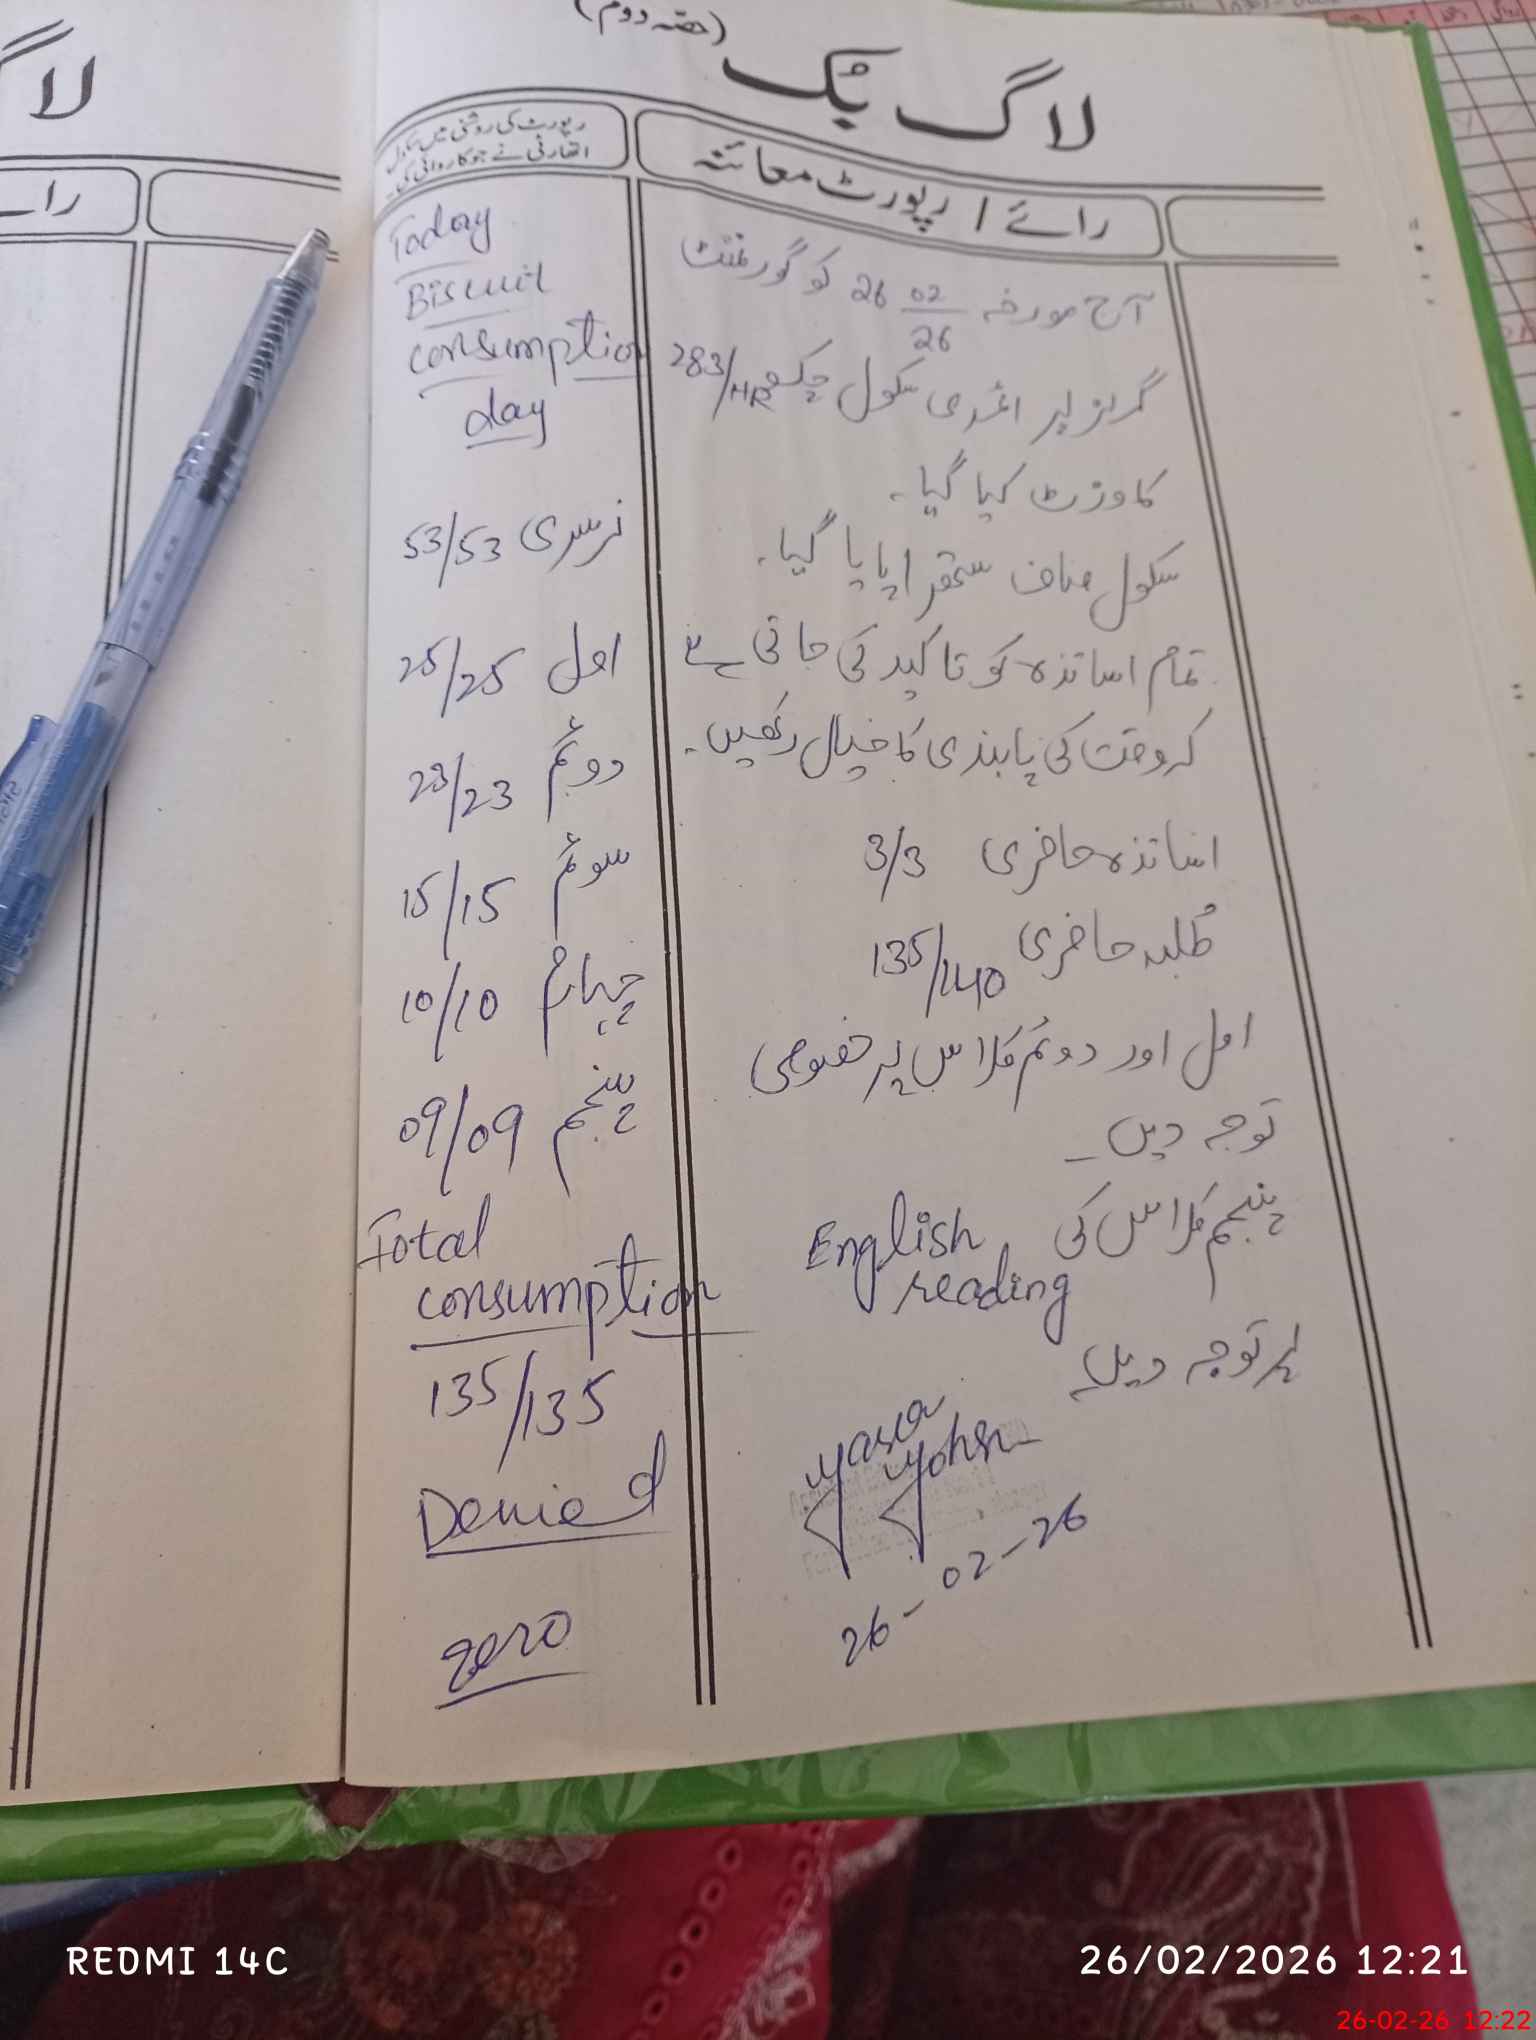 لاگ بک (حصہ دوم)
رائے / رپورٹ معائنہ
آج مورخہ 26 02/26 کو گورنمنٹ
گرلز پرائمری سکول چک 283/HR
کا وزٹ کیا گیا۔
سکول صاف ستھرا پایا گیا۔
تمام اساتذہ کو تاکید کی جاتی ہے
کہ وقت کی پابندی کا خیال رکھیں۔
اساتذہ حاضری 3/3
طلبہ حاضری 135/140
اول اور دوئم کلاس پر خصوصی
توجہ دیں۔
پنجم کلاس کی English
reading
پر توجہ دیں۔
26-02-26
رپورٹ کی روشنی میں سکول
اتھارٹی نے جو کاروائی کی۔
Today
Biscuit
consumption
day
نرسری 53/53
اول 25/25
دوئم 23/23
سوئم 15/15
چہارم 10/10
پنجم 09/09
Total
consumption
135/135
Denied
zero
لا
رائے
REDMI 14C
26/02/2026 12:21
26-02-26 12:22